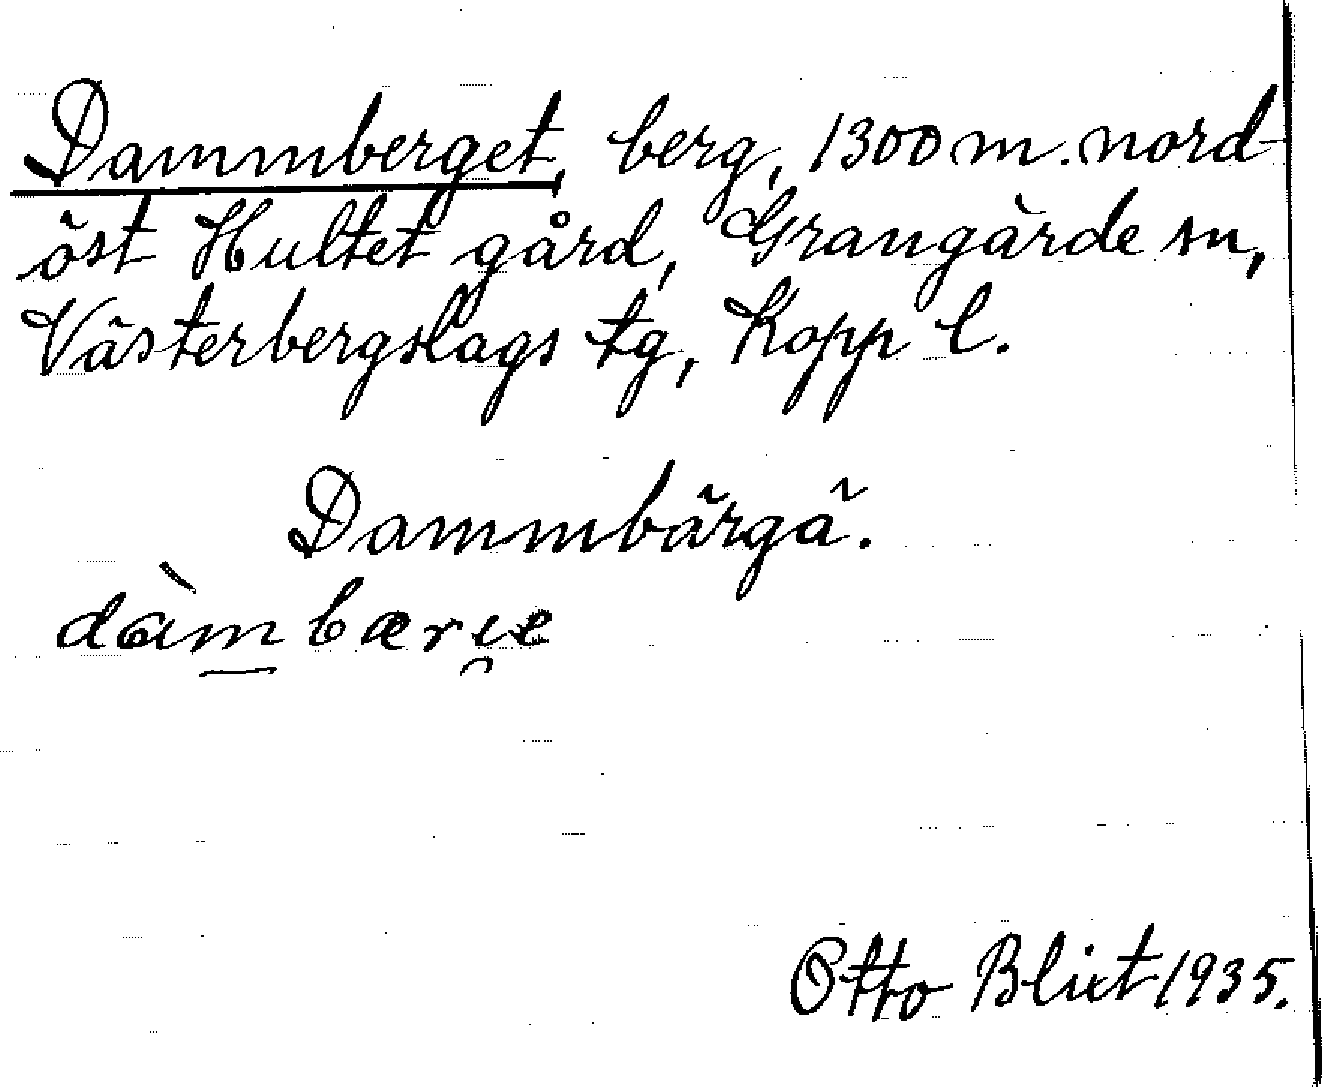 Dammberget, berg, 1300 m. nord-
öst Hultet gård, Grangärde sn,
Västerbergslags tg, Kopp l.
Dammbärgä.
dàm̲bæri̯e
Otto Blixt 1935.